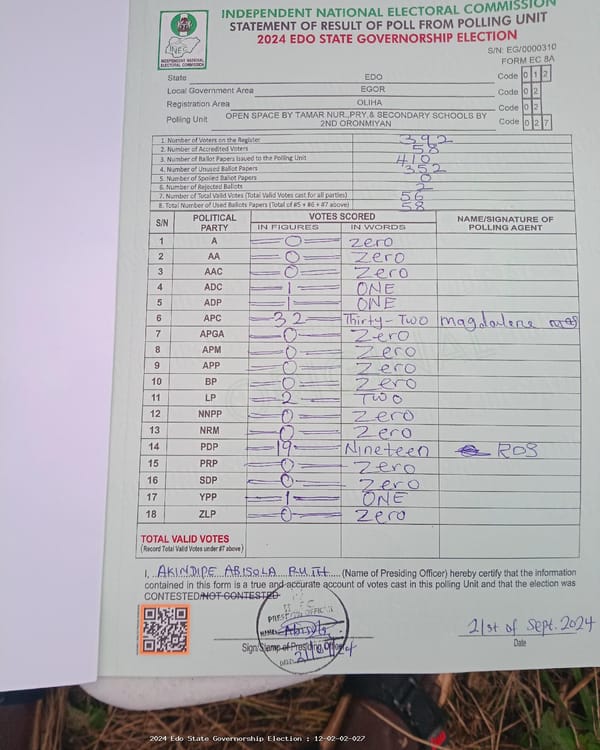 INDEPENDENT NATIONAL ELECTORAL COMMISSION
STATEMENT OF RESULT OF POLL FROM POLLING UNIT
2024 EDO STATE GOVERNORSHIP ELECTION
INEC
INDEPENDENT NATIONAL ELECTORAL COMMISSION
S/N: EG/0000310
FORM EC 8A
State EDO Code 0 1 2
Local Government Area EGOR Code 0 2
Registration Area OLIHA Code 0 2
Polling Unit OPEN SPACE BY TAMAR NUR.,PRY,& SECONDARY SCHOOLS BY 2ND ORONMIYAN Code 0 2 7
1. Number of Voters on the Register 392
2. Number of Accredited Voters 58
3. Number of Ballot Papers Issued to the Polling Unit 410
4. Number of Unused Ballot Papers 352
5. Number of Spoiled Ballot Papers 0
6. Number of Rejected Ballots 2
7. Number of Total Valid Votes (Total Valid Votes cast for all parties) 56
8. Total Number of Used Ballots Papers (Total of #5 + #6 + #7 above) 58
S/N POLITICAL PARTY VOTES SCORED NAME/SIGNATURE OF POLLING AGENT
IN FIGURES IN WORDS
1 A 0 Zero
2 AA 0 Zero
3 AAC 0 Zero
4 ADC 1 ONE
5 ADP 1 ONE
6 APC 32 Thirty-Two magdarlene
7 APGA 0 Zero
8 APM 0 Zero
9 APP 0 Zero
10 BP 0 Zero
11 LP 2 TWO
12 NNPP 0 Zero
13 NRM 0 Zero
14 PDP 19 Nineteen
15 PRP 0 Zero
16 SDP 0 Zero
17 YPP 1 ONE
18 ZLP 0 Zero
TOTAL VALID VOTES
(Record Total Valid Votes under #7 above)
I, AKINDIPE ABISOLA RUTH (Name of Presiding Officer) hereby certify that the information
contained in this form is a true and accurate account of votes cast in this polling Unit and that the election was
CONTESTED/NOT CONTESTED
PRESIDING OFFICER
NAME
DATE
Sign/Stamp of Presiding Officer
21st of Sept. 2024
Date
2024 Edo State Governorship Election : 12-02-02-027